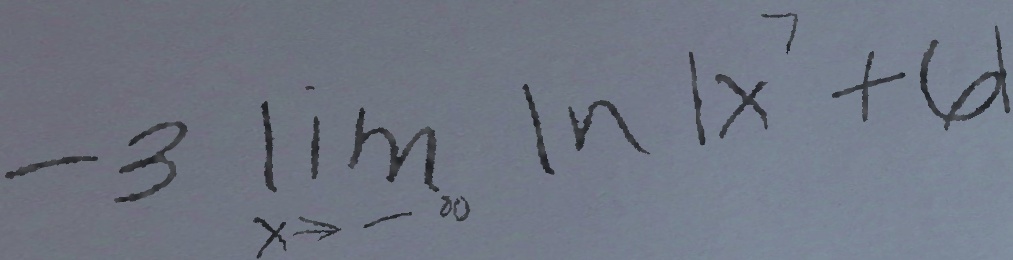 -3 lim ln |x⁷ + 6|
x → -∞